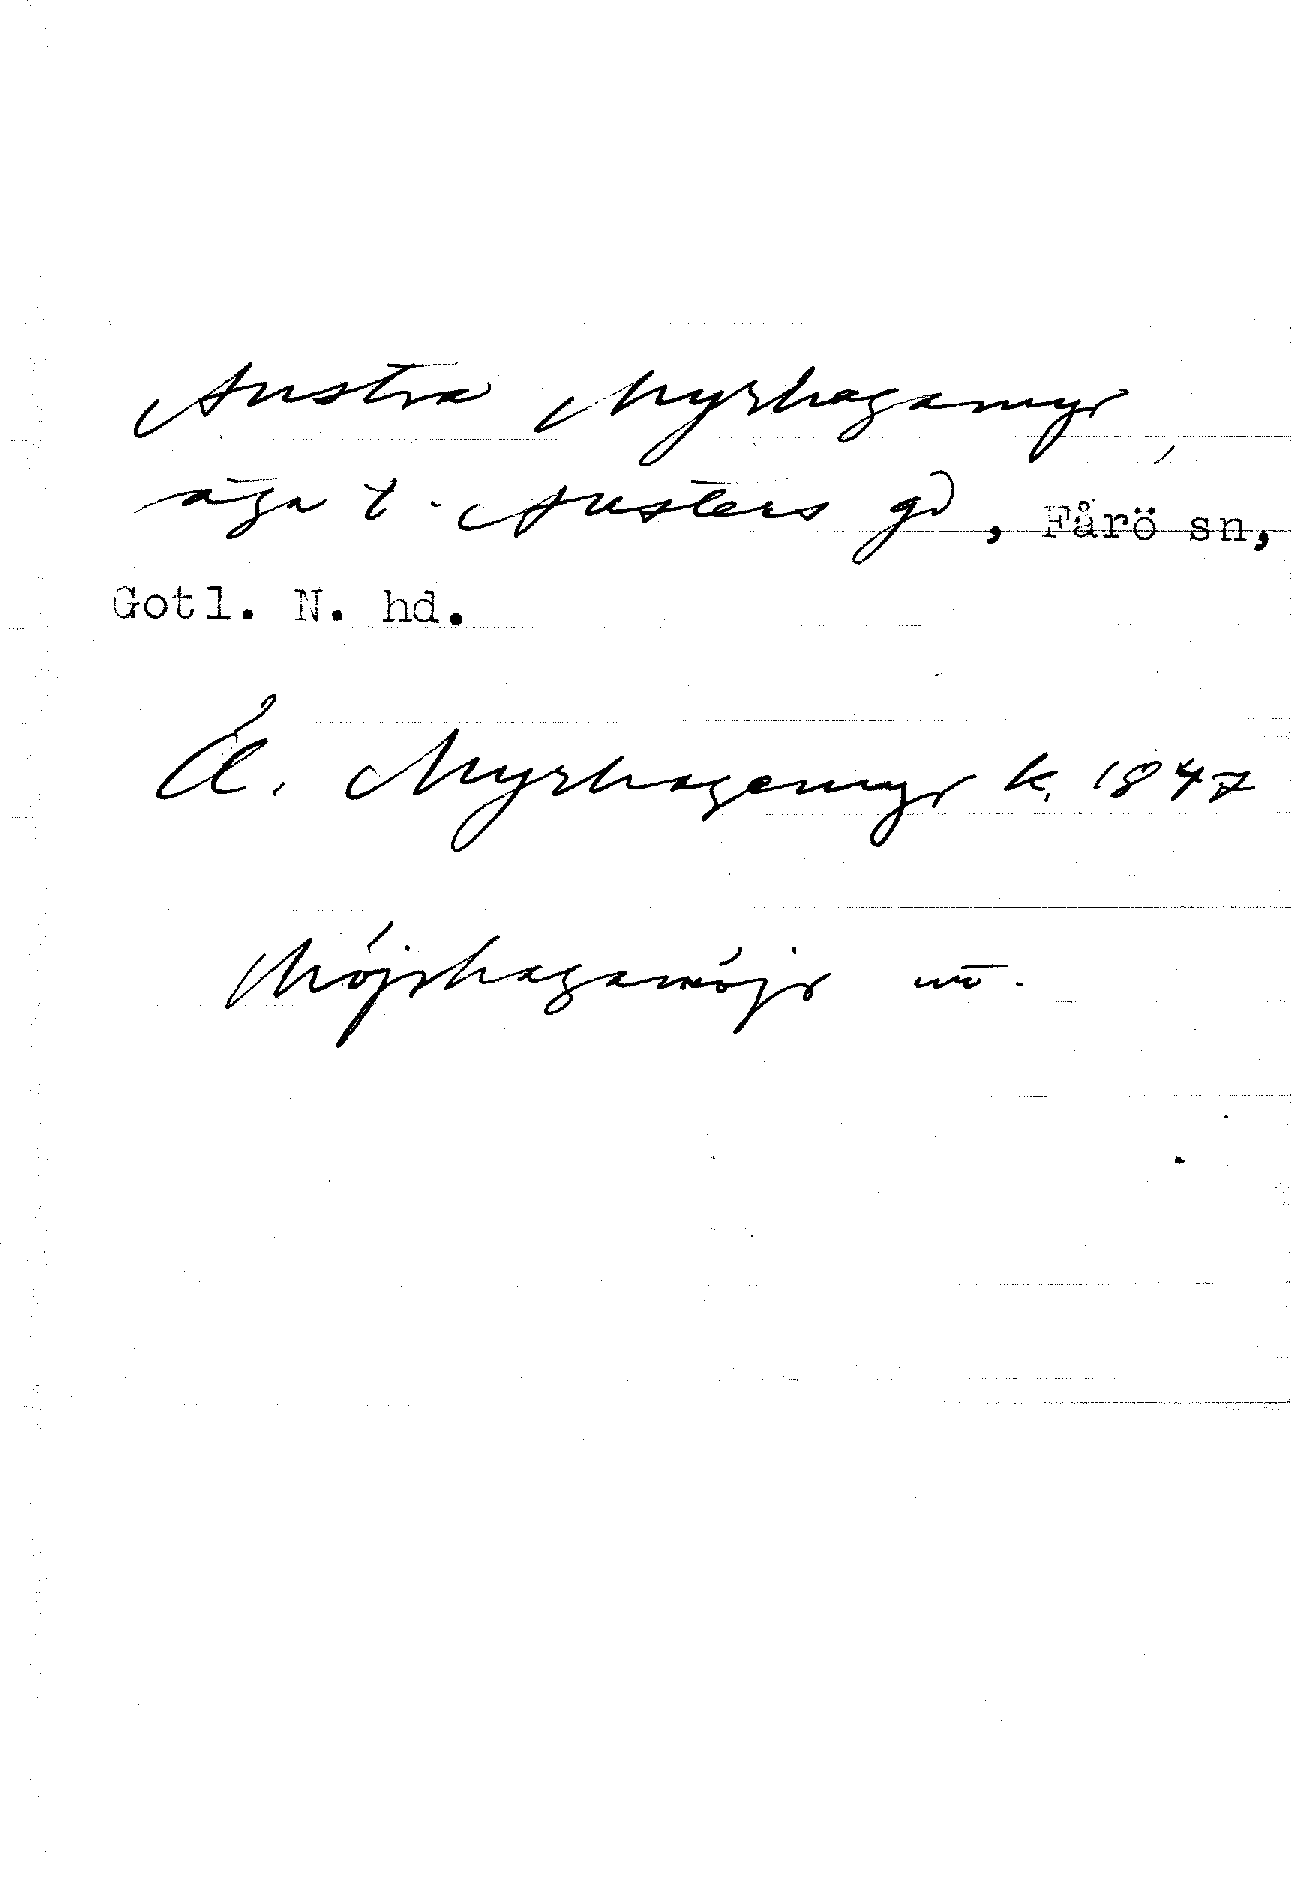 Austra Myrhagamyr,
äga t. Austers gd, Fårö sn,
Gotl. N. hd.
Ö. Myrhagemyr k. 1847
Mójrhagamójr